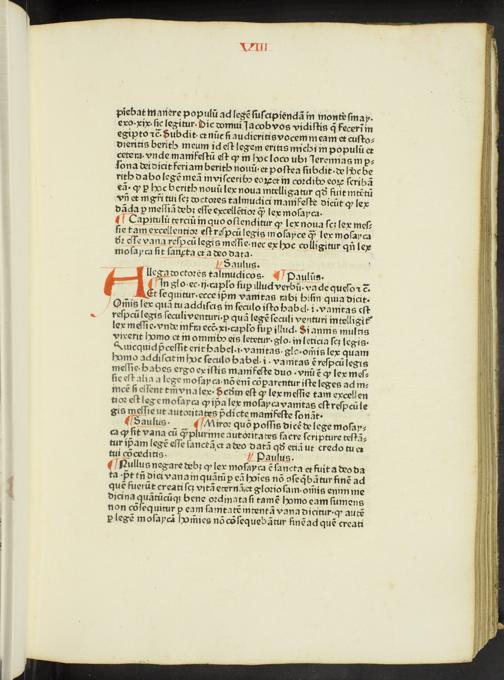 VIII
piebat manere populū ad legē suscipiendā in monte smay.
exo.xix. sic legitur. Dic domui Jacob vos vidistis q̄ fecerī in
egipto ⁊c̄. Subdit. et nūc si audieritis vocem meam et custo-
dieritis berith meum id est legem eritis michi in populū et
cetera. vnde manifestū est ꝙ in hoc loco vbi Jeremias in p̱-
sona dei dicit feriam berith nouū. et postea subdit. de hoc be
rith dabo legē meā in visceribꝰ eoꝝ et in cordibꝰ eoꝝ scribā
eā. ꝙ ꝑ hoc berith nouū lex noua intelligatur
vn̄ et mgr̄i tui scꝫ doctores talmudici manifeste dicūt ꝙ lex
dāda ꝑ messiā debꝫ esse excellētior q̄ꝫ lex mosayca.
¶ Capitulū terciū in quo ostenditur ꝙ lex noua scꝫ lex mes-
sie tam excellentior est respcū legis mosayce ꝙ lex mosayca
dr̄ esse vana respcū legis messie. nec ex hoc colligitur qn̄ lex
mosayca sit sancta et a deo data.
¶ Saulus.
Allega doctores talmudicos. ¶ Paulus.
¶ In glo. ec. ij. caplo sup illud verbū. vade queso ⁊c̄.
Et sequitur. ecce ip̄m vanitas rabi hisn̄ quia dicit.
Om̄is lex quā tu addiscis in seculo isto habel. i. vanitas est
respcū legis seculi venturi. ꝑ quā legē seculi venturi intelligit͛
lex messie. vnde infra ecc̄. xi. caplo sup illud. Si annis multis
vixerit homo et in omnibꝰ eis letetur. glo. in leticia scꝫ legis.
Quicquid p̄cessit erit habel. i. vanitas. glo. om̄is lex quam
homo addiscit in hoc seculo habel. i. vanitas ē respcū legis
messie. habes ergo ex istis manifeste duo. vnū ē ꝙ lex mes-
sie est alia a lege mosayca. nō eni cōparentur iste leges ad in-
uicē si essent tm̄ vna lex. Scd̄m est ꝙ lex messie tam excellen
tior est lege mosayca ꝙ ip̄a lex mosayca vanitas est respcū le
gis messie vt autoritates p̄dicte manifeste sonāt.
¶ Saulus. ¶ Miror quō possis dicē de lege mosay-
ca ꝙ sit vana cū q̄ꝫplurime autoritates sacre scripture testā-
tur ip̄am legē esse sanctā et a deo datā qd̄ etiā vt credo tu et
tui cōceditis. ¶ Paulus.
¶ Nullus negare debꝫ ꝙ lex mosayca ē sancta et fuit a deo da
ta. pt̄ tn̄ dici vana in quātū ꝑ eā hoīes nō cōseq̄bātur finē ad
quē fuerūt creati scꝫ vitā eternā et gloriosam. om̄is enim me
dicina quātūcūqꝫ bene ordinata si tamē homo eam sumens
non cōsequitur ꝑ eam sanitatē intentā vana dicitur. ꝙ autē
ꝑ legē mosaycā hoīnes nō cōsequebātur finē ad quē creati